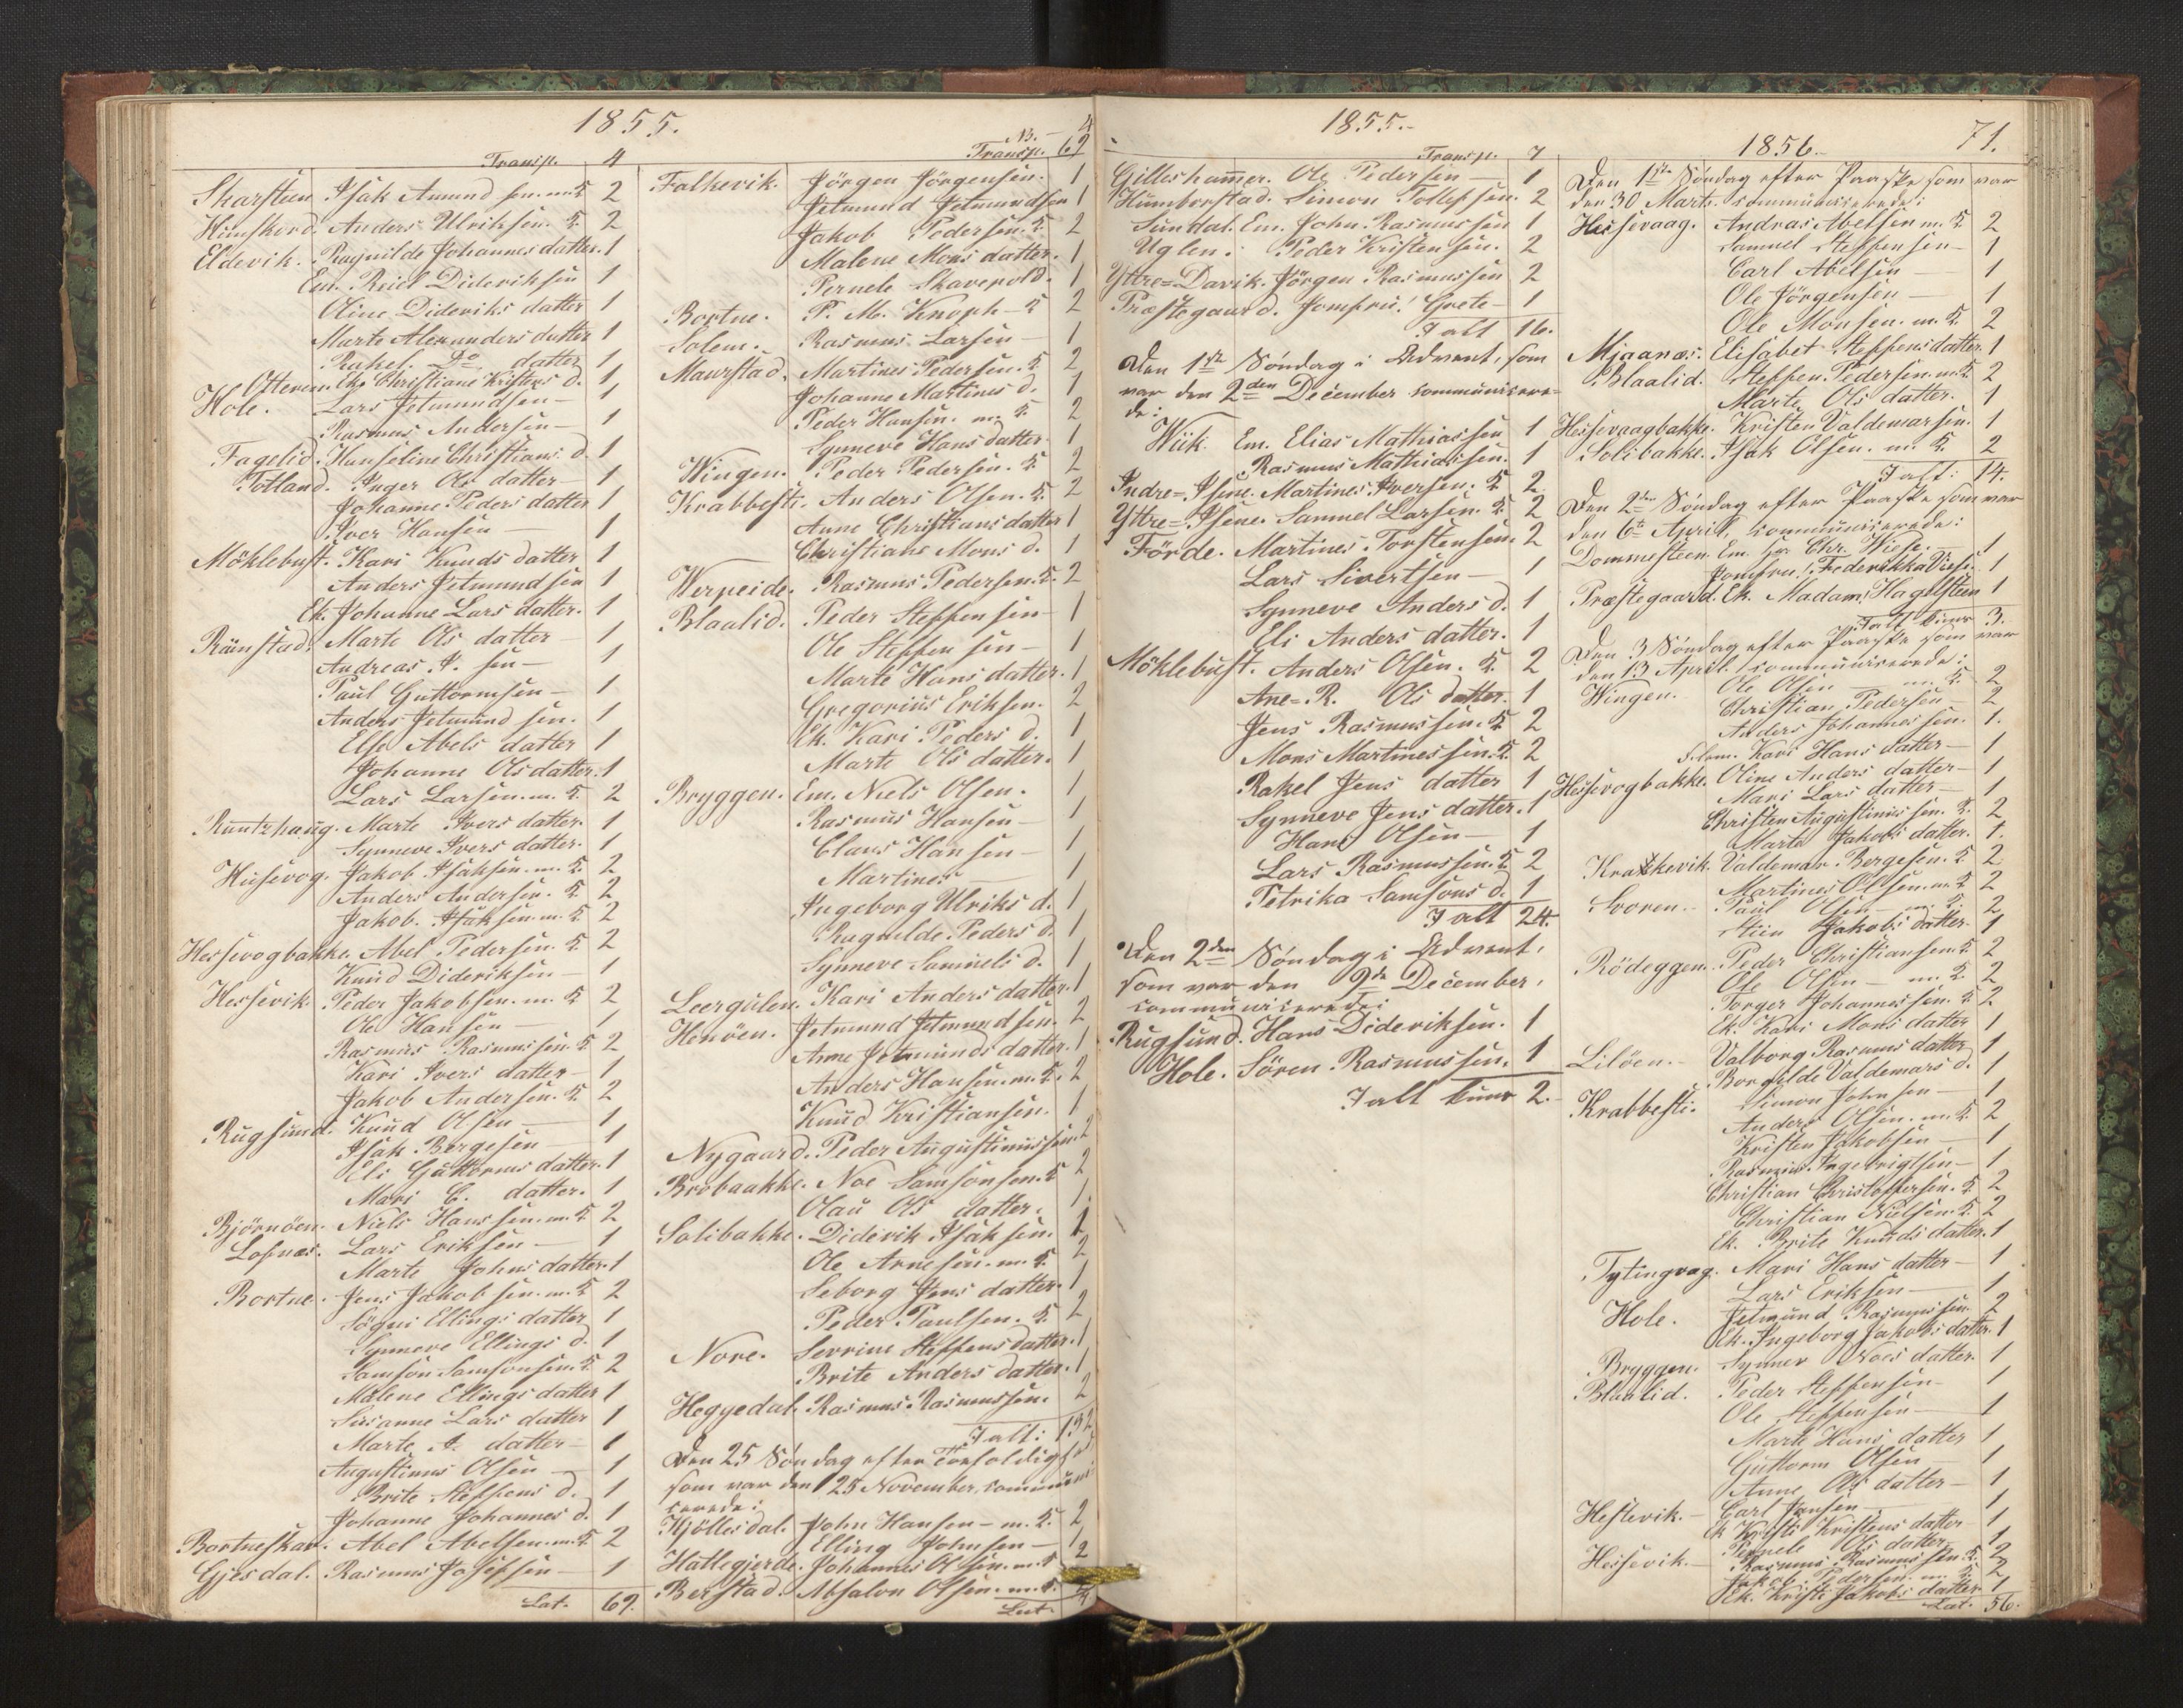 1855.
Transp. 4
Skarsteen Isak Amundsen. m. K. 2
Humskord. Anders Ulriksen. K. 2
Eldevik. Ragnilde Johannes datter. 1
Em. Reiel Dideriksen 1
Oline Dideriks datter 1
Marte Alexanders datter 1
Rakel Do datter 1
Otteren. Ek. Christiane Kristens d. 1
Hole. Lars Jetmundsen — 1
Rasmus Andersen — 1
Fagelid. Hanseline Christians d. 1
Totland. Inger Ols datter — 1
Johanne Peders datter 1
Iver Hansen 1
Möklebust. Kari Knuds datter 1
Anders Jetmundsen 1
Ek. Johanne Lars datter. 1
Rünstad. Marte Ols datter — 1
Andreas A. sen — 1
Paul Guttormsen — 1
Anders Jetmundsen. 1
Else Abels datter 1
Johanne Ols datter. 1
Lars Larsen. m. K. 2
Runtzhaug. Marte Ivers datter. 1
Synneve Ivers datter. 1
Husevog. Jakob Isaksen. m. K. 2
Anders Andersen. K. 2
Jakob. Isaksen. m. K. 2
Hessevogbakke. Abel Pedersen. K. 2
Knud Dideriksen — 1
Hessevik. Peder Jakobsen. m. K. 2
Ole Hansen — 1
Rasmus Rasmussen. K. 2
Kari Ivers datter — 1
Jakob Andersen. K. 2
Rugsund. Knud Olsen — 1
Isak Bergesen — 1
Eli Guttorms datter. 1
Mari C. datter. 1
Björnöen. Niels Hanssen. m. K. 2
Losnæs. Lars Eriksen — 1
Marte Johns datter. 1
Bortne. Jens Jakobsen. m. K. 2
Sögni Ellings datter 1
Synneve Ellings d. 1
Samson Samsonsen. K. 2
Malene Ellings datter 1
Susanne Lars datter 1
Marte A. datter — 1
Augustinus Olsen — 1
Brite Steffens d. 1
Johanne Johannes d. 1
Bortneskar. Abel Abelsen. m. K. 2
Gjesdal. Rasmus Josefsen — 1
Lat. 69.
N. — 4
Transp. 69
Falkevik. Jörgen Jörgensen. 1
Jetmund Jetmundsen 1
Jakob Pedersen. K. 2
Malene Mons datter. 1
Pernele Skaverold. 1
Bortne. P. M. Knoph — K. 2
Solem. Rasmus Larsen — 1
Maurstad. Martines Pedersen. K. 2
Johanne Martinus d. 1
Peder Hansen. m. K. 2
Synneve Hans datter 1
Wingen. Peder Pedersen. K. 2
Krabbesti. Anders Olsen. K. 2
Anne Christians datter 1
Christiane Mons d. 1
Werpeide. Rasmus Pedersen. K. 2
Blaalid. Peder Steffensen 1
Ole Steffensen — 1
Marte Hans datter. 1
Gregorius Eriksen. 2
Ek. Kari Peders d. 1
Marte Ols datter. 1
Bryggen. Em. Niels Olsen. 1
Rasmus Hansen — 1
Claus Hansen — 1
Martines — 1
Ingeborg Ulriks d. 1
Ragnilde Peders d. 1
Synneve Samuels d. 1
Leergulen. Kari Anders datter. 1
Henöen. Jetmund Jetmundsen. 2
Anne Jetmunds datter. 1
Anders Hansen. m. K. 2
Knud Kristiansen. 1
Nygaard. Peder Augustinussen. 2
Brobaakke. Noe Samsonsen. K. 2
Olau Ols datter. 1.
Solibakke. Diderik Isaksen. 1
Ole Arnesen. m. K. 2
Seborg Jens datter. 1
Peder Paulsen. K. 2
Nore. Serrine Steffens datter. 1
Brite Anders datter. 1
Heggedal. Rasmus Rasmussen. 2
I alt: 132
Den 25 Söndag efter Trefoldigh
som var den 25 November, communi
cerede:
Hjöllesdal. John Hansen — m. K. 2
Elling Johnsen — 1
Hatlegjerde. Johannes Olsen. m. K. 2
Berstad. Absalon Olsen. m. K. 2
Lat.
1855. —
Transp. 7
Gilleshammer. Ole Pedersen — 1
Humborstad. Simon Tollefsen. 2
Sundal. Em. John Rasmussen 1
Uglen. Peder Kristensen. 2
Yttre=Davik. Jörgen Rasmussen 2
Præstegaard. Jomfrue! Grete — 1
I alt 16.
Den 1ste Söndag i Advent, som
var den 2den December communicere=
de:
Wiik. Em. Elias Mathiassen 1
Rasmus Mathiassen. 1
Indre=Isene. Martines Iversen. K. 2
Yttre=Isene. Samuel Larsen. K. 2
Förde. Martines Torstensen. 2
Lars Sivertsen — 1
Synneve Anders d. 1
Eli Anders datter. 1
Möklebust. Anders Olsen. K. 2
Ane=R. Ols datter. 1
Jens Rasmussen. K. 2
Mons Martinessen. K. 2
Rakel Jens datter 1
Synneve Jens datter. 1
Hans Olsen — 1
Lars Rasmussen. K. 2
Petrika Samsons d. 1
I alt 24.
Den 2den Söndag i Advent,
som var den 9de December,
communicerede:
Rugsund. Hans Dideriksen. 1
Hole. Sören Rasmussen. 1
I alt kuns 2. —
71.
1856. —
Den 1ste Söndag efter Paaske som var
den 30 Marts. communicerede:
Hessevaag. Andreas Abelsen m. K. 2
Samuel Steffensen — 1
Carl Abelsen — 1
Ole Jörgensen — 1
Ole Monsen. m. K. 2
Mjaanæs. Elisabet Steffensdatter. 1
Blaalid. Steffen Pedersen. m. K. 2
Marte Ols datter. 1
Hessevaagbakke. Kristen Valdemarsen. 1
Solibakke. Isak Olsen. m. K. 2
I alt: 14.
Den 2den Söndag efter Paaske som var
den 6te April, communicerede:
Dommesteen. Em. Hr. Chr. Wiese. — 1
Jomfru! Frederikka Viese. 1
Præstegaard. Ek. Madam! Hagelsteen 1
I alt kuns 3.
Den 3 Söndag efter Paaske som var
den 13 April communicerede:
Wingen. Ole Olsen — m. K. 2
Christian Pedersen — 2
Anders Johannessen. 1.
Kari Hans datter — 1
Hessevogbakke. Oline Anders datter — 1
Mari Lars datter — 1
Christen Augustinussen. K. 2
Marte Jakobs datter. 1.
Krakkevik. Valdemar Bergesen. K. 2
Martines Olsen. m. K. 2
Svoren. Paul Olsen — m. K. 2
Stein Jakobs datter. 1
Rödeggen. Peder Christiansen. K. 2
Ole Olsen — m. K. 2
Torger Johannessen. K. 2
Ek. Kari Mons datter 1
Lilöen. Valborg Rasmus datter 1
Borgilde Valdemars d. 1
Krabbesti. Simon Johnsen — 1
Anders Olsen. m. K. 2
Kristen Jakobsen — 1
Rasmus Ingebrigtsen — 1
Christian Christoffersen. K. 2
Christian Nielsen. K. 2
Ek. Brite Knuds datter. 1
Tytingvag. Mari Hans datter — 1
Lars Eriksen — 1
Hole. Jetmund Rasmussen 2
Ek. Ingeborg Jakobs datter. 1
Bryggen. Synnev Noes datter. 1
Blaalid. Peder Steffensen — 1
Ole Steffensen — 1
Marte Hans datter 1
Guttorm Olsen 1
Anne Ols datter — 1
Hestevik. — Carl Jansen — 1
Ek Kristi Kristens datter 1
Pernele Ols datter 1
Hessevik. — Rasmus Rasmussen. K. 2
Jakob Pedersen. m. K. 2
Ek. Kristi Jakobs datter. 1
Lat. 56.